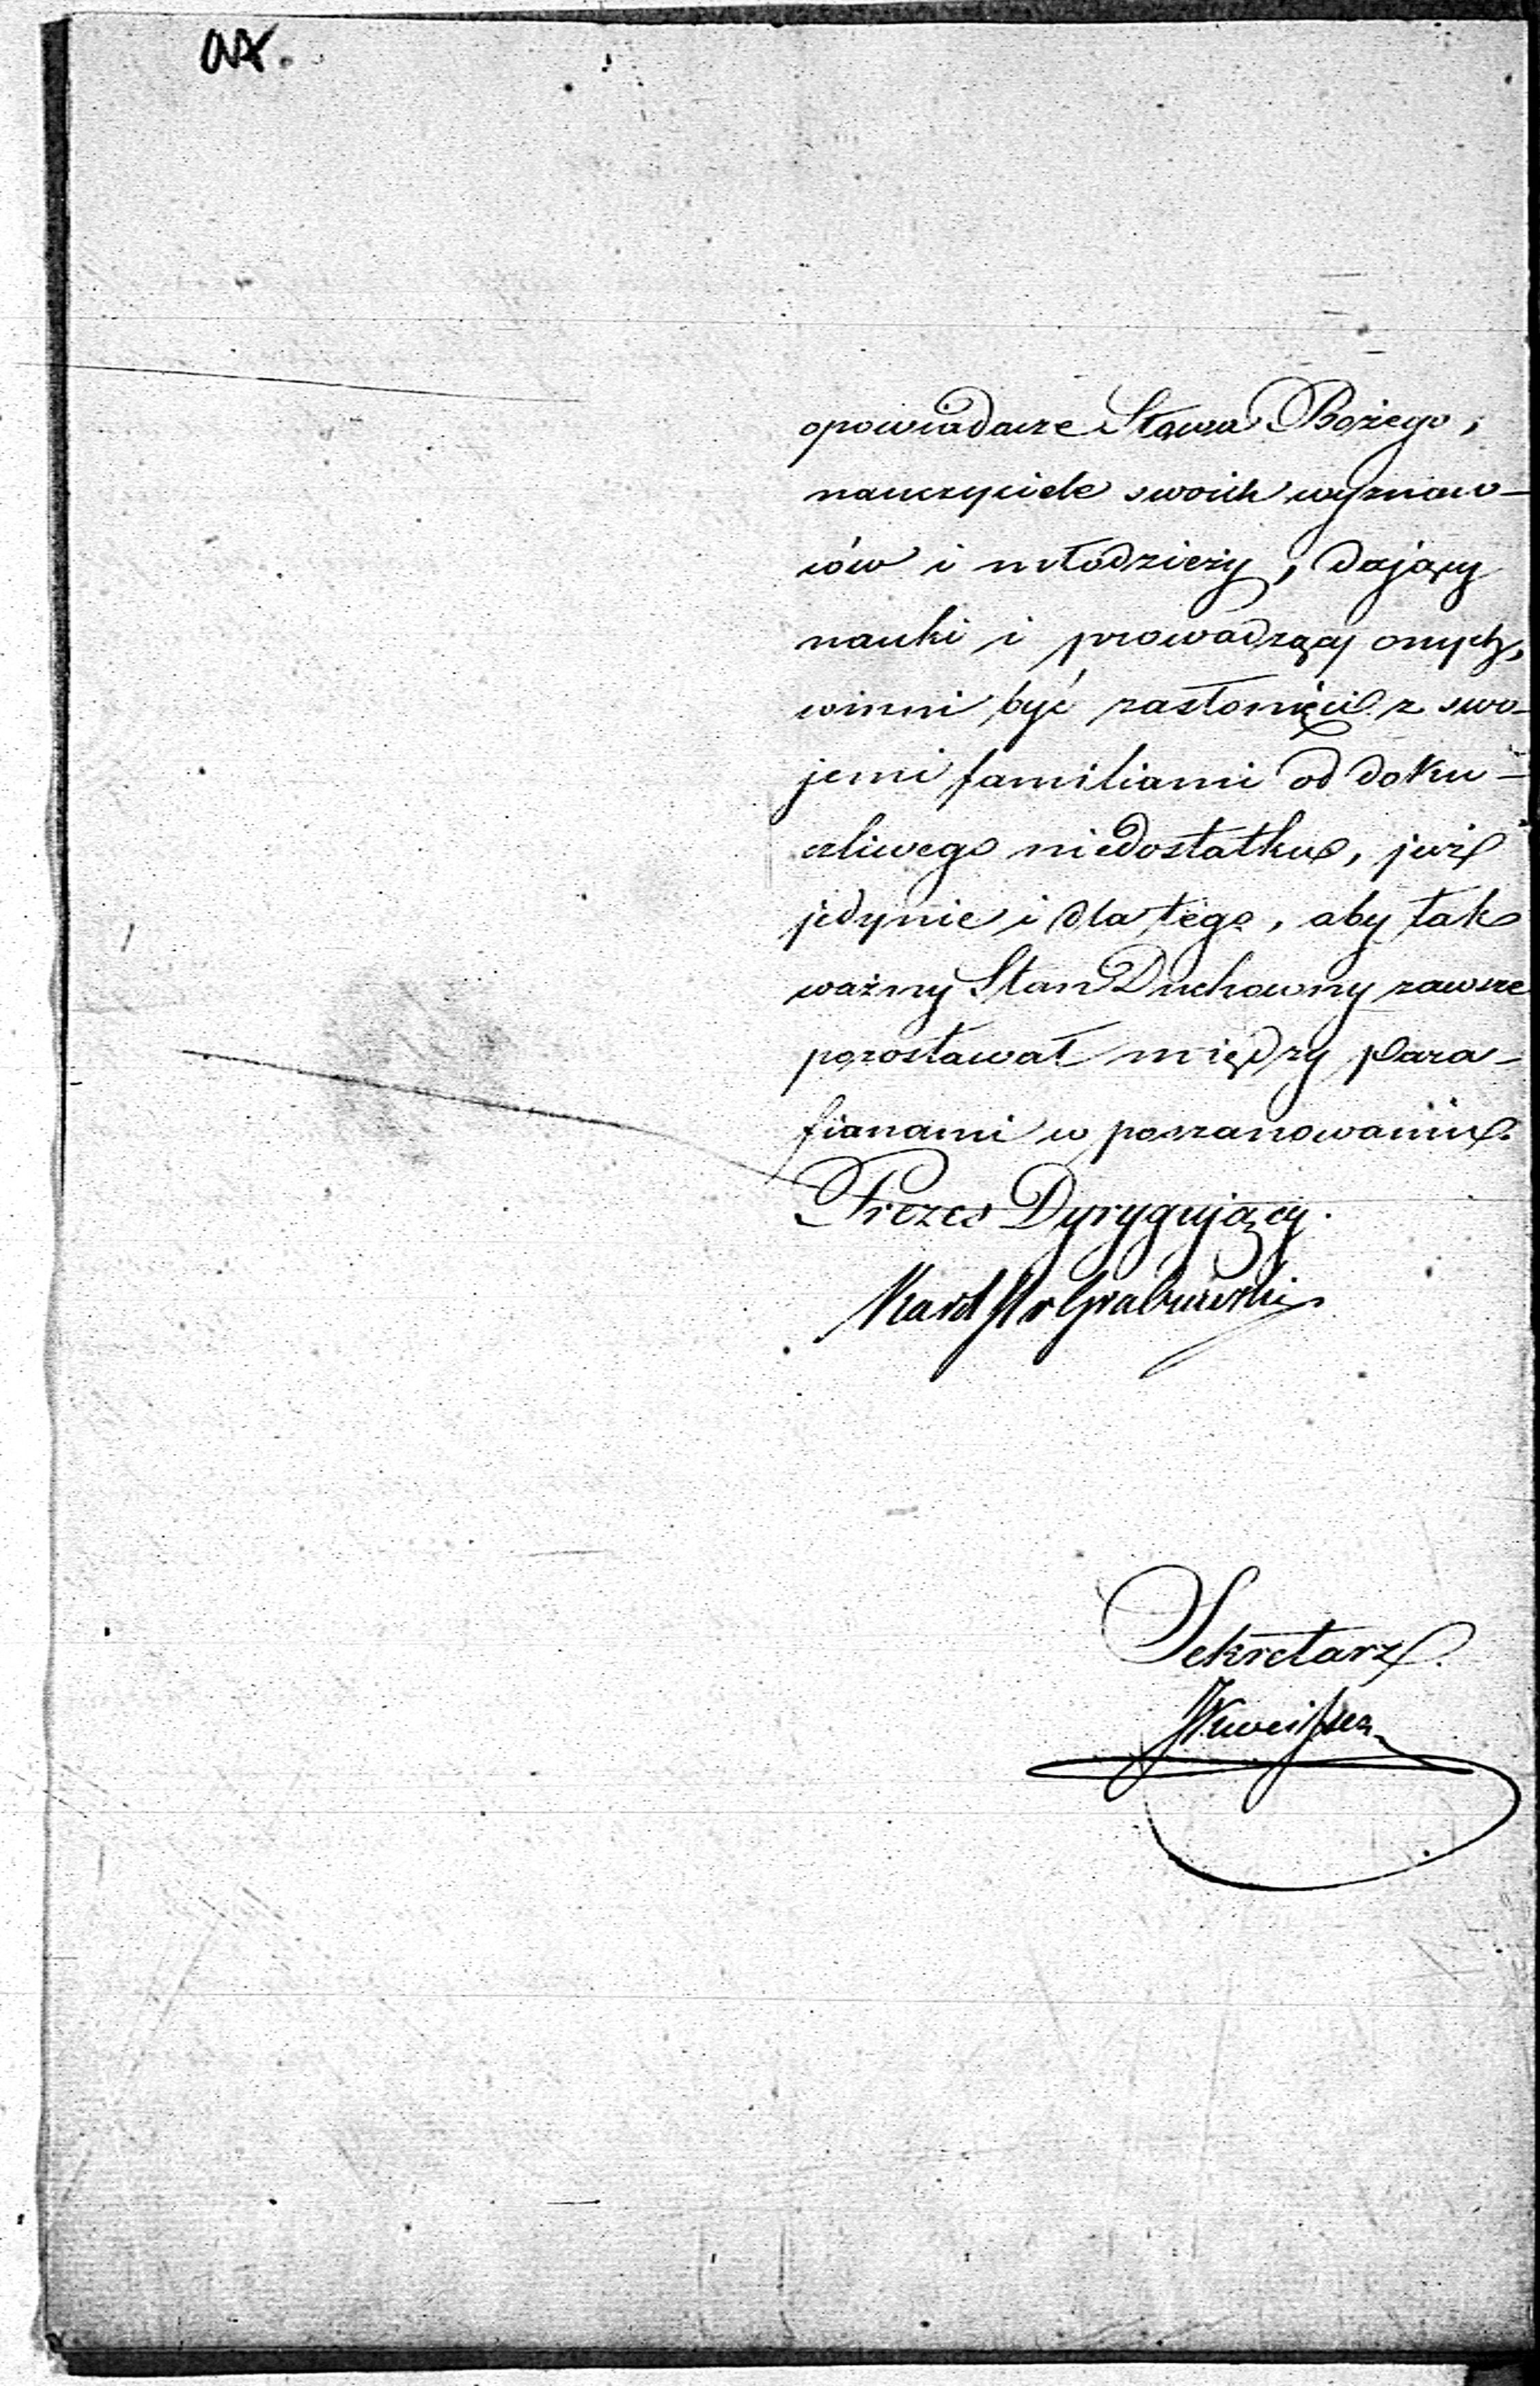 opowiadacze Słowa Bożego,
nauczyciele swoich wyznaw-
ców i młodzieży, dający
nauki i prowadzący onych,
winni być zasłonięci z swo-
jemi familiami od doku-
czliwego niedostatku, już
jedynie i dla tego, aby tak
ważny Stan Duchowny zawsze
pozostawał między para-
fianami w poszanowaniu.
Prezes Dyrygujący.
Karol Grabowski
Sekretarz.